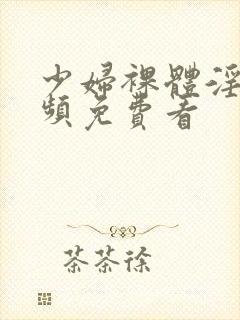 少婦裸體淫
頻免費看
茶茶徐